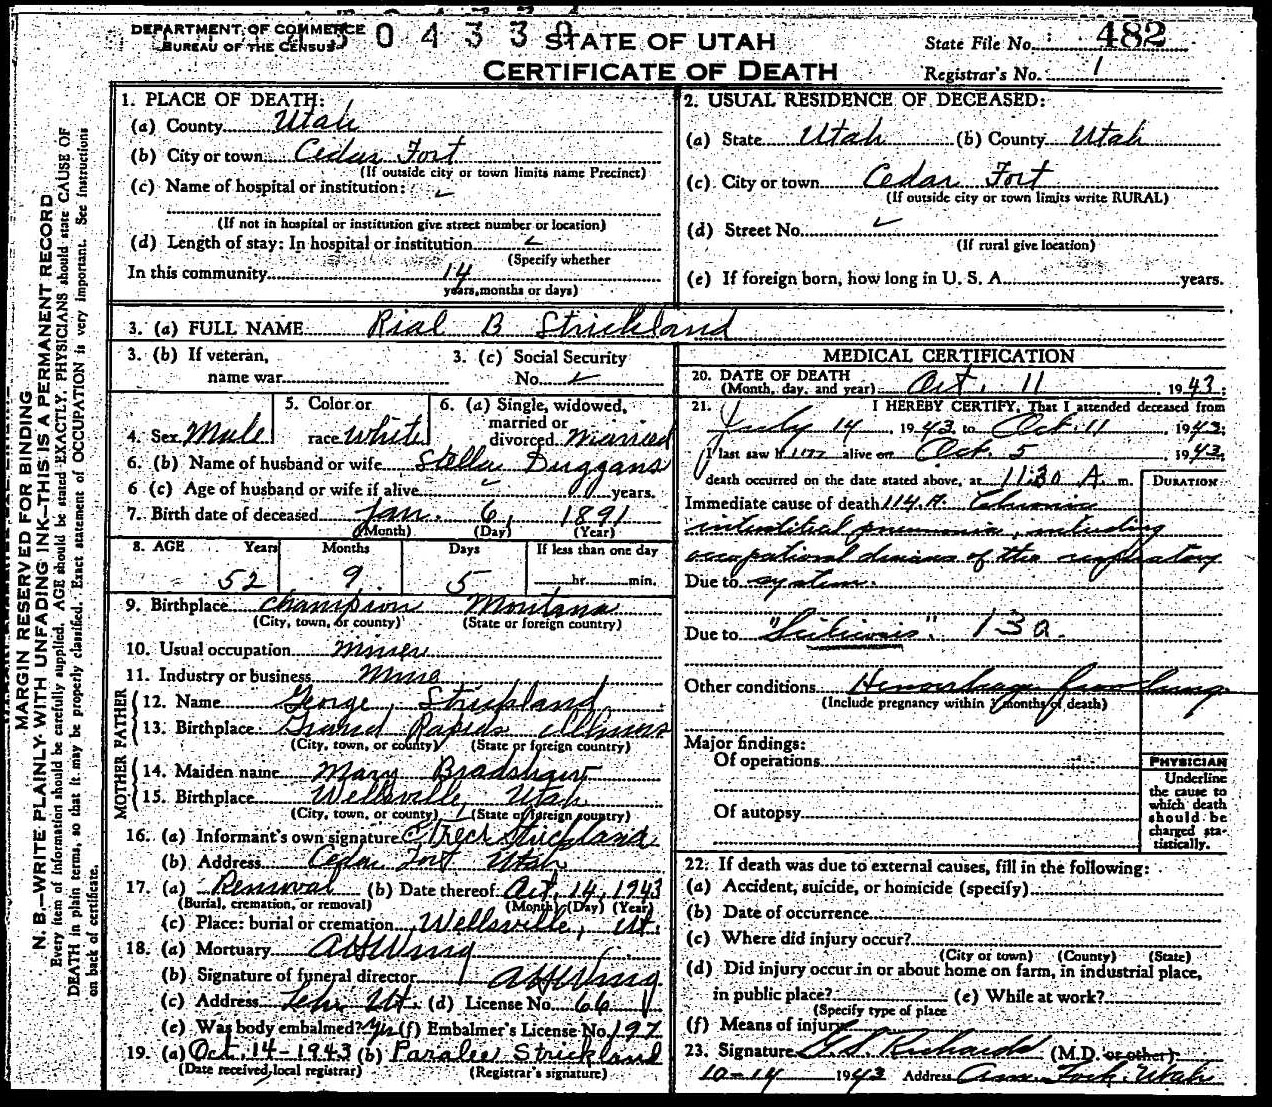 DEPARTMENT OF COMMERCE
BUREAU OF THE CENSUS
3 0 4 3 3 0
STATE OF UTAH
CERTIFICATE OF DEATH
State File No. 482
Registrar's No. 1
MARGIN RESERVED FOR BINDING
N. B.—WRITE PLAINLY WITH UNFADING INK—THIS IS A PERMANENT RECORD
Every item of information should be carefully supplied. AGE should be stated EXACTLY. PHYSICIANS should state CAUSE OF
DEATH in plain terms, so that it may be properly classified. Exact statement of OCCUPATION is very important. See instructions
on back of certificate.
1. PLACE OF DEATH:
(a) County Utah
(b) City or town Cedar Fort
(If outside city or town limits name Precinct)
(c) Name of hospital or institution: ✓
(If not in hospital or institution give street number or location)
(d) Length of stay: In hospital or institution ✓
(Specify whether
In this community 14
years, months or days)
2. USUAL RESIDENCE OF DECEASED:
(a) State Utah (b) County Utah
(c) City or town Cedar Fort
(If outside city or town limits write RURAL)
(d) Street No. ✓
(If rural give location)
(e) If foreign born, how long in U. S. A. years.
3. (a) FULL NAME Rial B Strickland
3. (b) If veteran,
name war
3. (c) Social Security
No. ✓
4. Sex Male
5. Color or
race White
6. (a) Single, widowed,
married or
divorced married
6. (b) Name of husband or wife Stella Duggans
6 (c) Age of husband or wife if alive years.
7. Birth date of deceased Jan. 6, 1891
(Month) (Day) (Year)
8. AGE Years Months Days If less than one day
52 9 5 hr. min.
9. Birthplace Champion Montana
(City, town, or county) (State or foreign country)
10. Usual occupation Miner
11. Industry or business Mine
FATHER
12. Name George Strickland
13. Birthplace Grand Rapids Illinois
(City, town, or county) (State or foreign country)
MOTHER
14. Maiden name Mary Bradshaw
15. Birthplace Wellsville, Utah
(City, town, or county) (State or foreign country)
16. (a) Informant's own signature Strickland
(b) Address Cedar Fort Utah
17. (a) Removal (b) Date thereof: Oct. 14, 1943
(Burial, cremation, or removal) (Month) (Day) (Year)
(c) Place: burial or cremation Wellsville, Ut.
18. (a) Mortuary
(b) Signature of funeral director
(c) Address Lehi Ut. (d) License No. 66
(e) Was body embalmed? Yes (f) Embalmer's License No. 197
19. (a) Oct. 14-1943 (b) Paralee Strickland
(Date received, local registrar) (Registrar's signature)
MEDICAL CERTIFICATION
20. DATE OF DEATH
(Month, day, and year) Oct. 11, 1943;
21. I HEREBY CERTIFY, That I attended deceased from
July 14, 1943 to Oct. 11, 1943;
I last saw him alive on Oct. 5, 1943;
death occurred on the date stated above, at 11:30 A. m.
DURATION
Immediate cause of death 114.A. Chronic
intestitial pneumonia, including
occupational diseases of the respiratory
Due to system.
Due to "Silicosis". 13a.
Other conditions Hemorrhage from lung.
(Include pregnancy within 3 months of death)
Major findings:
Of operations
Of autopsy
PHYSICIAN
Underline
the cause to
which death
should be
charged sta-
tistically.
22. If death was due to external causes, fill in the following:
(a) Accident, suicide, or homicide (specify)
(b) Date of occurrence
(c) Where did injury occur?
(City or town) (County) (State)
(d) Did injury occur in or about home on farm, in industrial place,
in public place? (e) While at work?
(Specify type of place
(f) Means of injury
23. Signature G.S. Richards (M.D. or other)
10-14 1943 Address Am. Fork, Utah